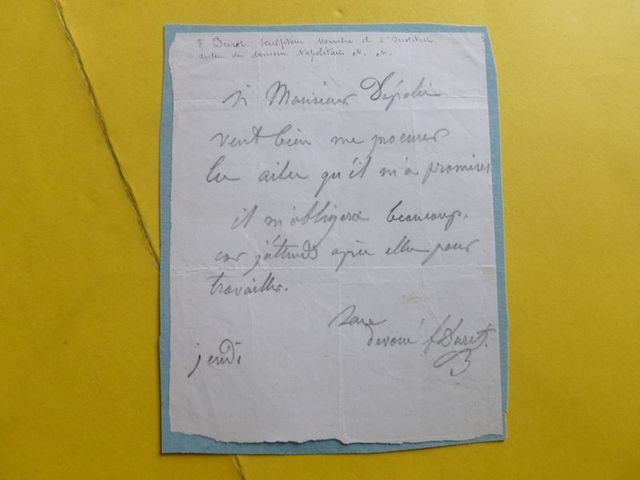 F Duret. sculpteur membre de l'Institut
auteur du danseur Napolitain etc. etc.
si Monsieur
veut bien me procurer
les ailes qu'il m'a promises
il m'obligera beaucoup.
car j'attends après elles pour
travailler.
devoué f Duret.
jeudi